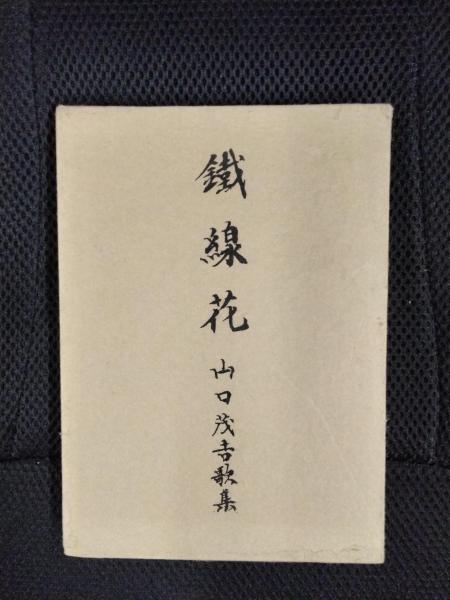 鐵線花
山口茂吉歌集